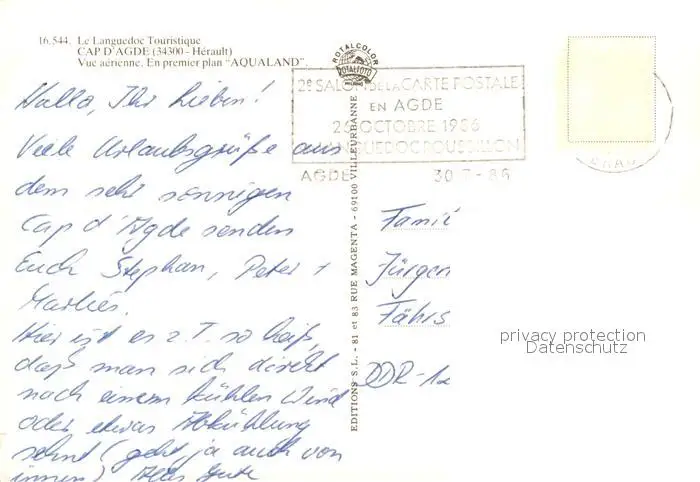 16.544. Le Languedoc Touristique
CAP D'AGDE (34300 - Hérault)
Vue aérienne. En premier plan "AQUALAND".
Hallo, Ihr Lieben!
Viele Urlaubsgrüße aus
dem sehr sonnigen
Cap d'Agde senden
Euch Stephan, Peter +
Marlies.
Hier ist es z.T. so heiß,
daß man sich direkt
nach einem kühlen Wind
oder etwas Abkühlung
sehnt (geht ja auch von
innen) Alles Gute
ROTALCOLOR
ROTALFOTO
2e SALON DE LA CARTE POSTALE
EN AGDE
26 OCTOBRE 1986
LANGUEDOC ROUSSILLON
AGDE 30 7 - 86
EDITIONS S.L. - 81 et 83 RUE MAGENTA - 69100 VILLEURBANNE
Famil
Jürgen
Fährs
DDR-12
privacy protection
Datenschutz